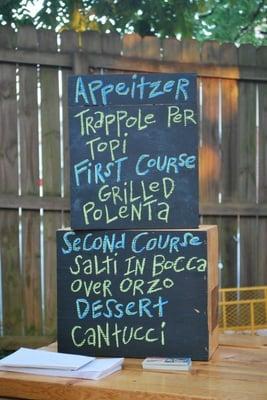 Appeitzer
Trappole Per
Topi
First Course
Grilled
Polenta
Second Course
Salti In Bocca
over orzo
Dessert
Cantucci